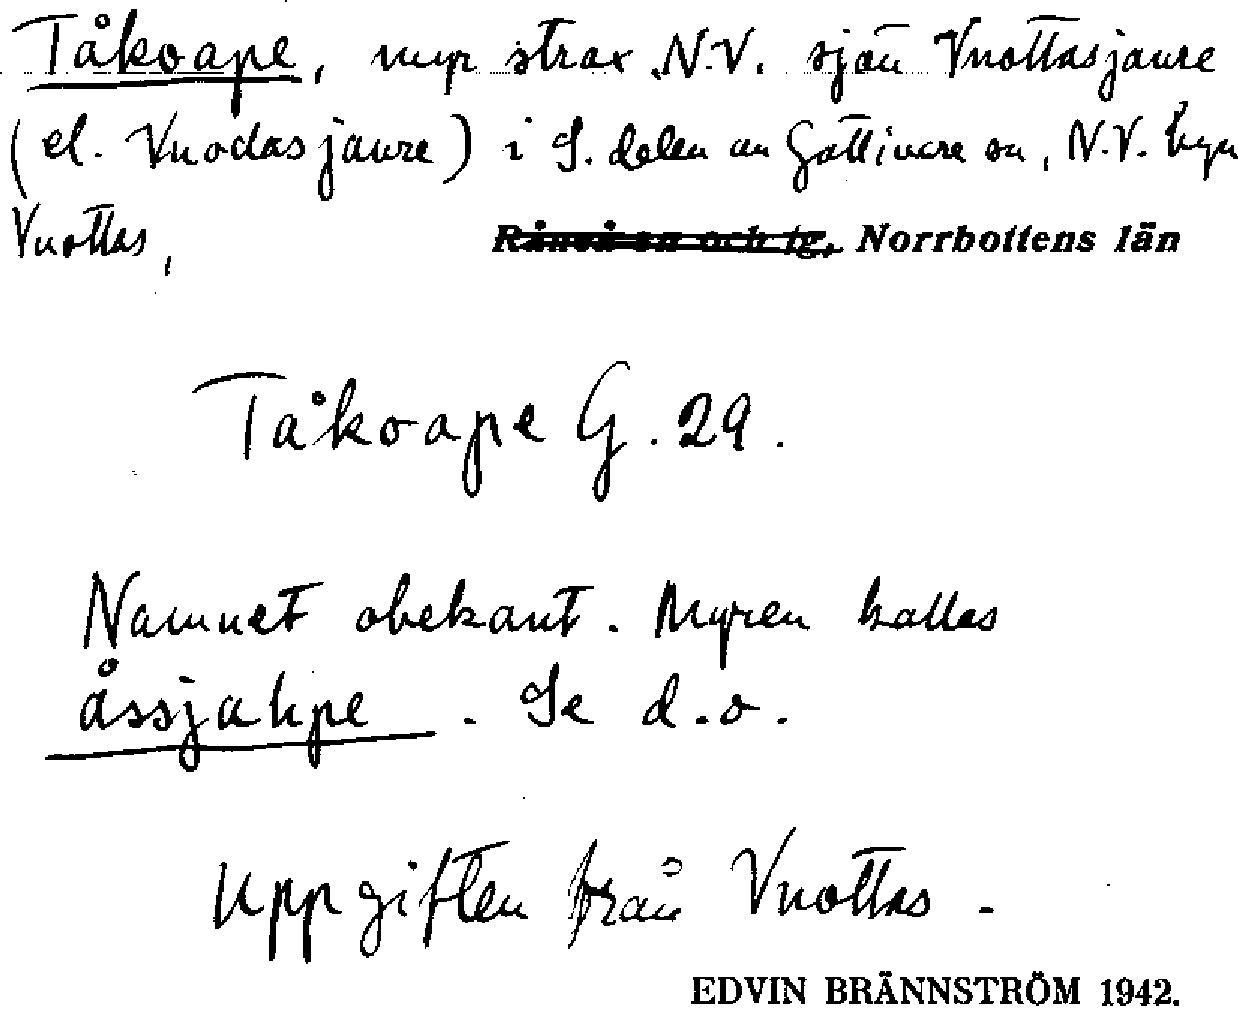 Tåkoape, myr strax N.V. sjön Vuottasjaure
(el. Vuodasjaure) i S. delen av Gällivare sn, N.V. byn
Vuottas, Råneå sn och tg, Norrbottens län
Tåkoape G. 29.
Namnet obekant. Myren kallas
åssjahpe. Se d.o.
Uppgiften från Vuottas.
EDVIN BRÄNNSTRÖM 1942.